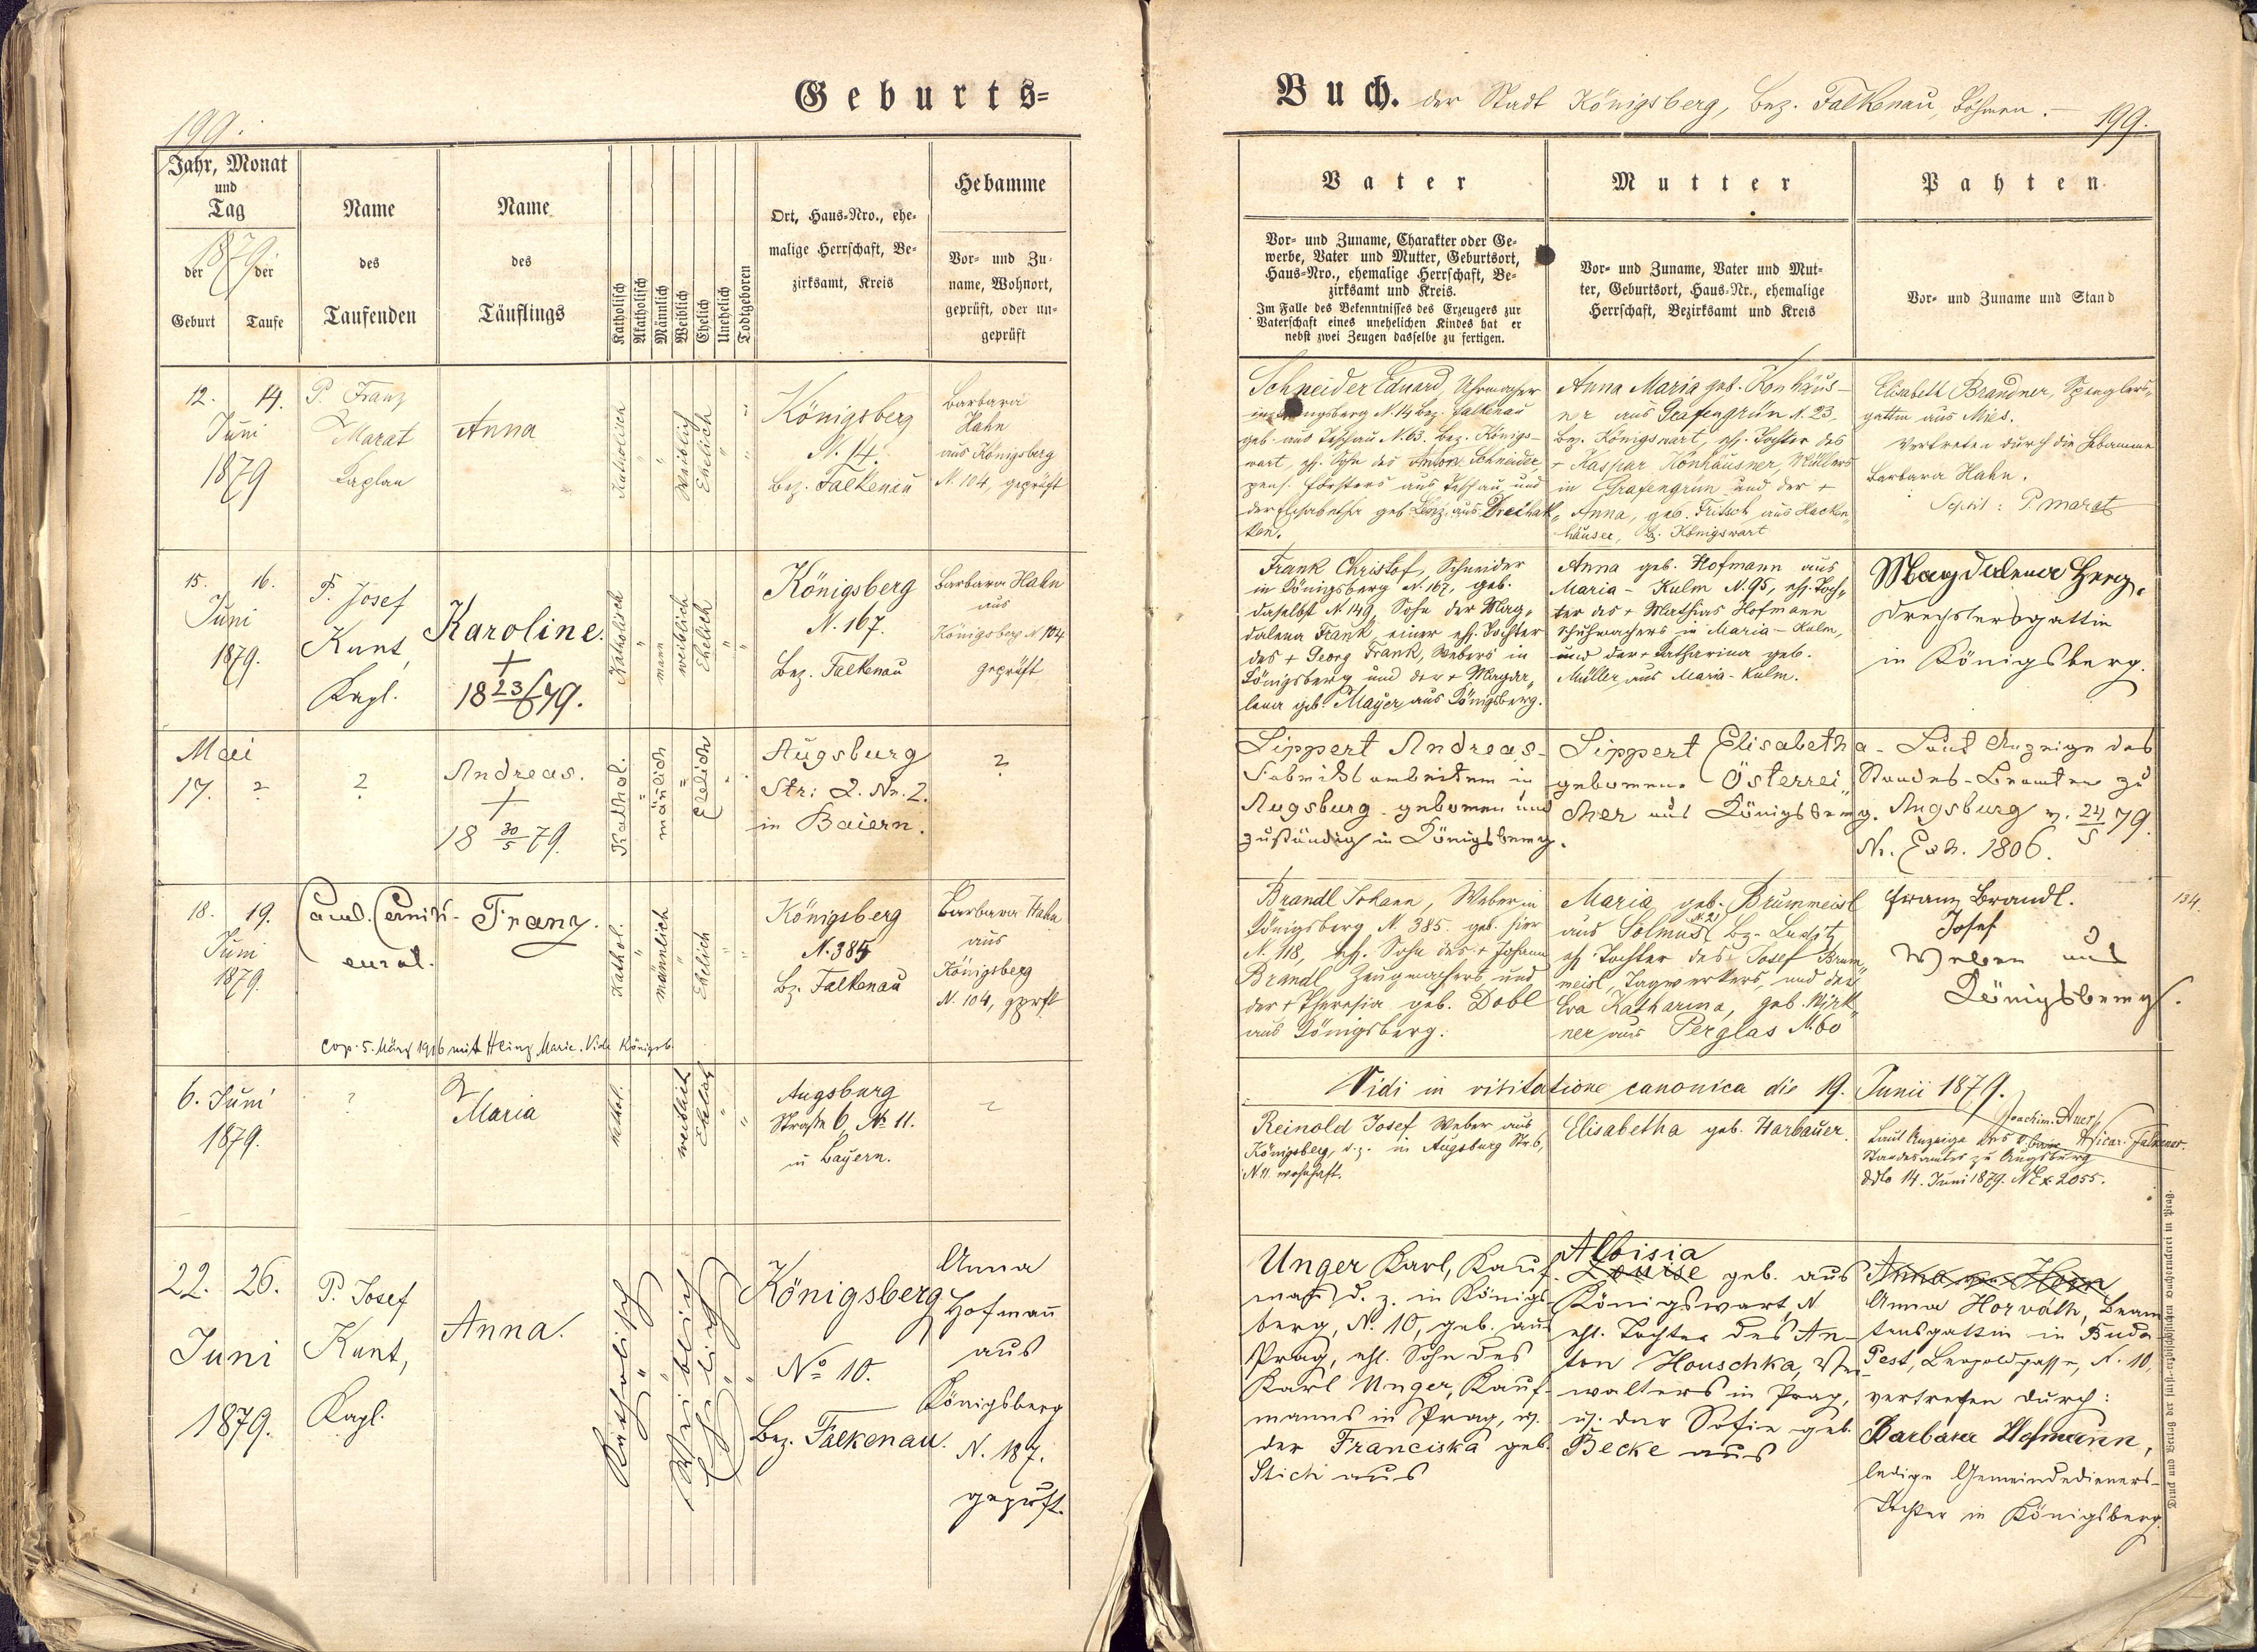 Geburts=
199.
Jahr, Monat
und
Tag
1879
der der
Geburt Taufe
Name
des
Taufenden
Name
des
Täuflings
Katholisch
Akatholisch
Männlich
Weiblich
Ehelich
Unehelich
Todtgeboren
Ort, Haus-Nro., ehe-
malige Herrschaft, Be-
zirksamt, Kreis
Hebamme
Vor- und Zu-
name, Wohnort,
geprüft, oder un-
geprüft
12. 14.
Juni
1879
P. Franz
Marat
Kaplan
Anna
Katholisch
Weiblich
Ehelich
Königsberg
N. 14.
Bez. Falkenau
Barbara
Hahn
aus Königsberg
N. 104, geprüft
15. 16.
Juni
1879.
P. Josef
Kunt,
Kapl.
Karoline.
+
18 23/6 79.
Katholisch
weiblich
Ehelich
Königsberg
N. 167.
Bez. Falkenau
Barbara Hahn
aus
Königsberg N 104
geprüft
Mai
17. ?
?
Andreas.
+
18 30/5 79.
Kathol.
mänlich
Ehelich
Augsburg
Str: 2. Nr. 2.
in Baiern.
?
18. 19.
Juni
1879.
Franz.
Kathol.
männlich
Ehelich
Königsberg
N. 385
Bz. Falkenau
Barbara Hahn
aus
Königsberg
N. 104, gprft
cop. 5. März 1916 mit Heinz Marie. Vide Königsb.
6. Juni
1879.
?
Maria
Kathol.
weiblich
Ehelich
Augsburg
Straße 6, No 11.
in Bayern.
22. 26.
Juni
1879.
P. Josef
Kunt,
Kapl.
Anna.
Katholisch
Weiblich
Ehelich
Königsberg
No 10.
Bez. Falkenau.
Anna
Hofmañ
aus
Königsberg
N. 187.
geprüft.
Buch. der Stadt Königsberg, Bez. Falkenau, Böhmen. –
199.
Vater
Vor- und Zuname, Charakter oder Ge-
werbe, Vater und Mutter, Geburtsort,
Haus-Nro., ehemalige Herrschaft, Be-
zirksamt und Kreis.
Im Falle des Bekenntnisses des Erzeugers zur
Vaterschaft eines unehelichen Kindes hat er
nebst zwei Zeugen dasselbe zu fertigen.
Mutter
Vor- und Zuname, Vater und Mut-
ter, Geburtsort, Haus-Nr., ehemalige
Herrschaft, Bezirksamt und Kreis
Pahten.
Vor- und Zuname und Stand
Schneider Eduard, Uhrmacher
in Königsberg N. 14 Bez. Falkenau
geb. aus Teschau N. 63. Bez. Königs-
wart, eh. Sohn des Anton Schneider,
pens. Försters aus Teschau und
der Elisabetha geb. Lenz aus Dreihak-
ken.
Anna Maria geb. Konhäus-
ner aus Grafengrün N. 23,
Bez. Königswart, eh. Tochter des
+ Kaspar Konhäusner, Müllers
in Grafengrün und der +
Anna, geb. Fritsch aus Hacken-
häuser, Bz. Königswart
Elisabeth Brandner, Spenglers-
gattin aus Mies.
Vertreten durch die Hebamme
Barbara Hahn.
P. Marat
Frank Christof, Schneider
in Königsberg N. 167, geb.
daselbst N. 149, Sohn der Mag-
dalena Frank einer eh. Tochter
des + Georg Frank, Webers in
Königsberg und der + Magda-
lena geb. Mayer aus Königsberg.
Anna geb. Hofmann aus
Maria-Kulm N. 95, eh. Toch-
ter des + Mathias Hofmann
Schuhmachers in Maria-Kulm,
und der + Katharina geb.
Müller aus Maria-Kulm.
Magdalena Herz,
Drechslersgattin
in Königsberg.
Lippert Andreas-
Fabriksarbeiter in
Augsburg geboren und
zuständig in Königsberg.
Lippert Elisabetha-
geborene Österrei-
cher aus Königsberg.
Laut Anzeige des
Standes-Beamten zu
Augsburg v. 24/5 79.
Nr. Exh. 1806.
Brandl Johann, Weber in
Königsberg N. 385. geb. hier
N. 118, eh. Sohn des + Johann
Brandl Zeugmachers und
der + Theresia geb. Dobl
aus Königsberg.
Maria geb. Brummeisl
aus Solmus N. 21 Bz. Luditz
eh. Tochter des Josef Brum-
meisl, Tagwerkers, und der
Eva Katharina, geb. Wirk-
ner aus Perglas N. 60
Franz Brandl.
Josef
Weber aus
Königsberg.
134.
Vidi in visitatione canonica die 19. Junii 1879.
Joachim Auer
Vicar. Falkenav.
Reinold Josef Weber aus
Königsberg, d. z. in Augsburg Str. 6,
N. 11 wohnhaft.
Elisabetha geb. Harbauer.
Laut Anzeige des
Standesamtes zu Augsburg
ddto 14. Juni 1879. N Ex 2055.
Unger Karl, Kauf-
mañ d. z. in Königs-
berg, N. 10, geb. aus
Prag, ehl. Sohn des
Karl Unger, Kauf-
manns in Prag, u.
der Franciska geb.
Stich aus
Aloisia
Louise geb. aus
Königswart, N
ehl. Tochter des An-
ton Houschka, Ver-
walters in Prag,
u. der Sofie geb.
Becke aus
Anna von Horn
Anna Horvath, Beam-
tensgattin in Buda-
Pest, Leopoldgasse, N. 10,
vertreten durch:
Barbara Hofmann,
ledige Gemeindedieners-
Tochter in Königsberg.
Druck und Verlag der fürst-erzbischöflichen Buchdruckerei in Prag.